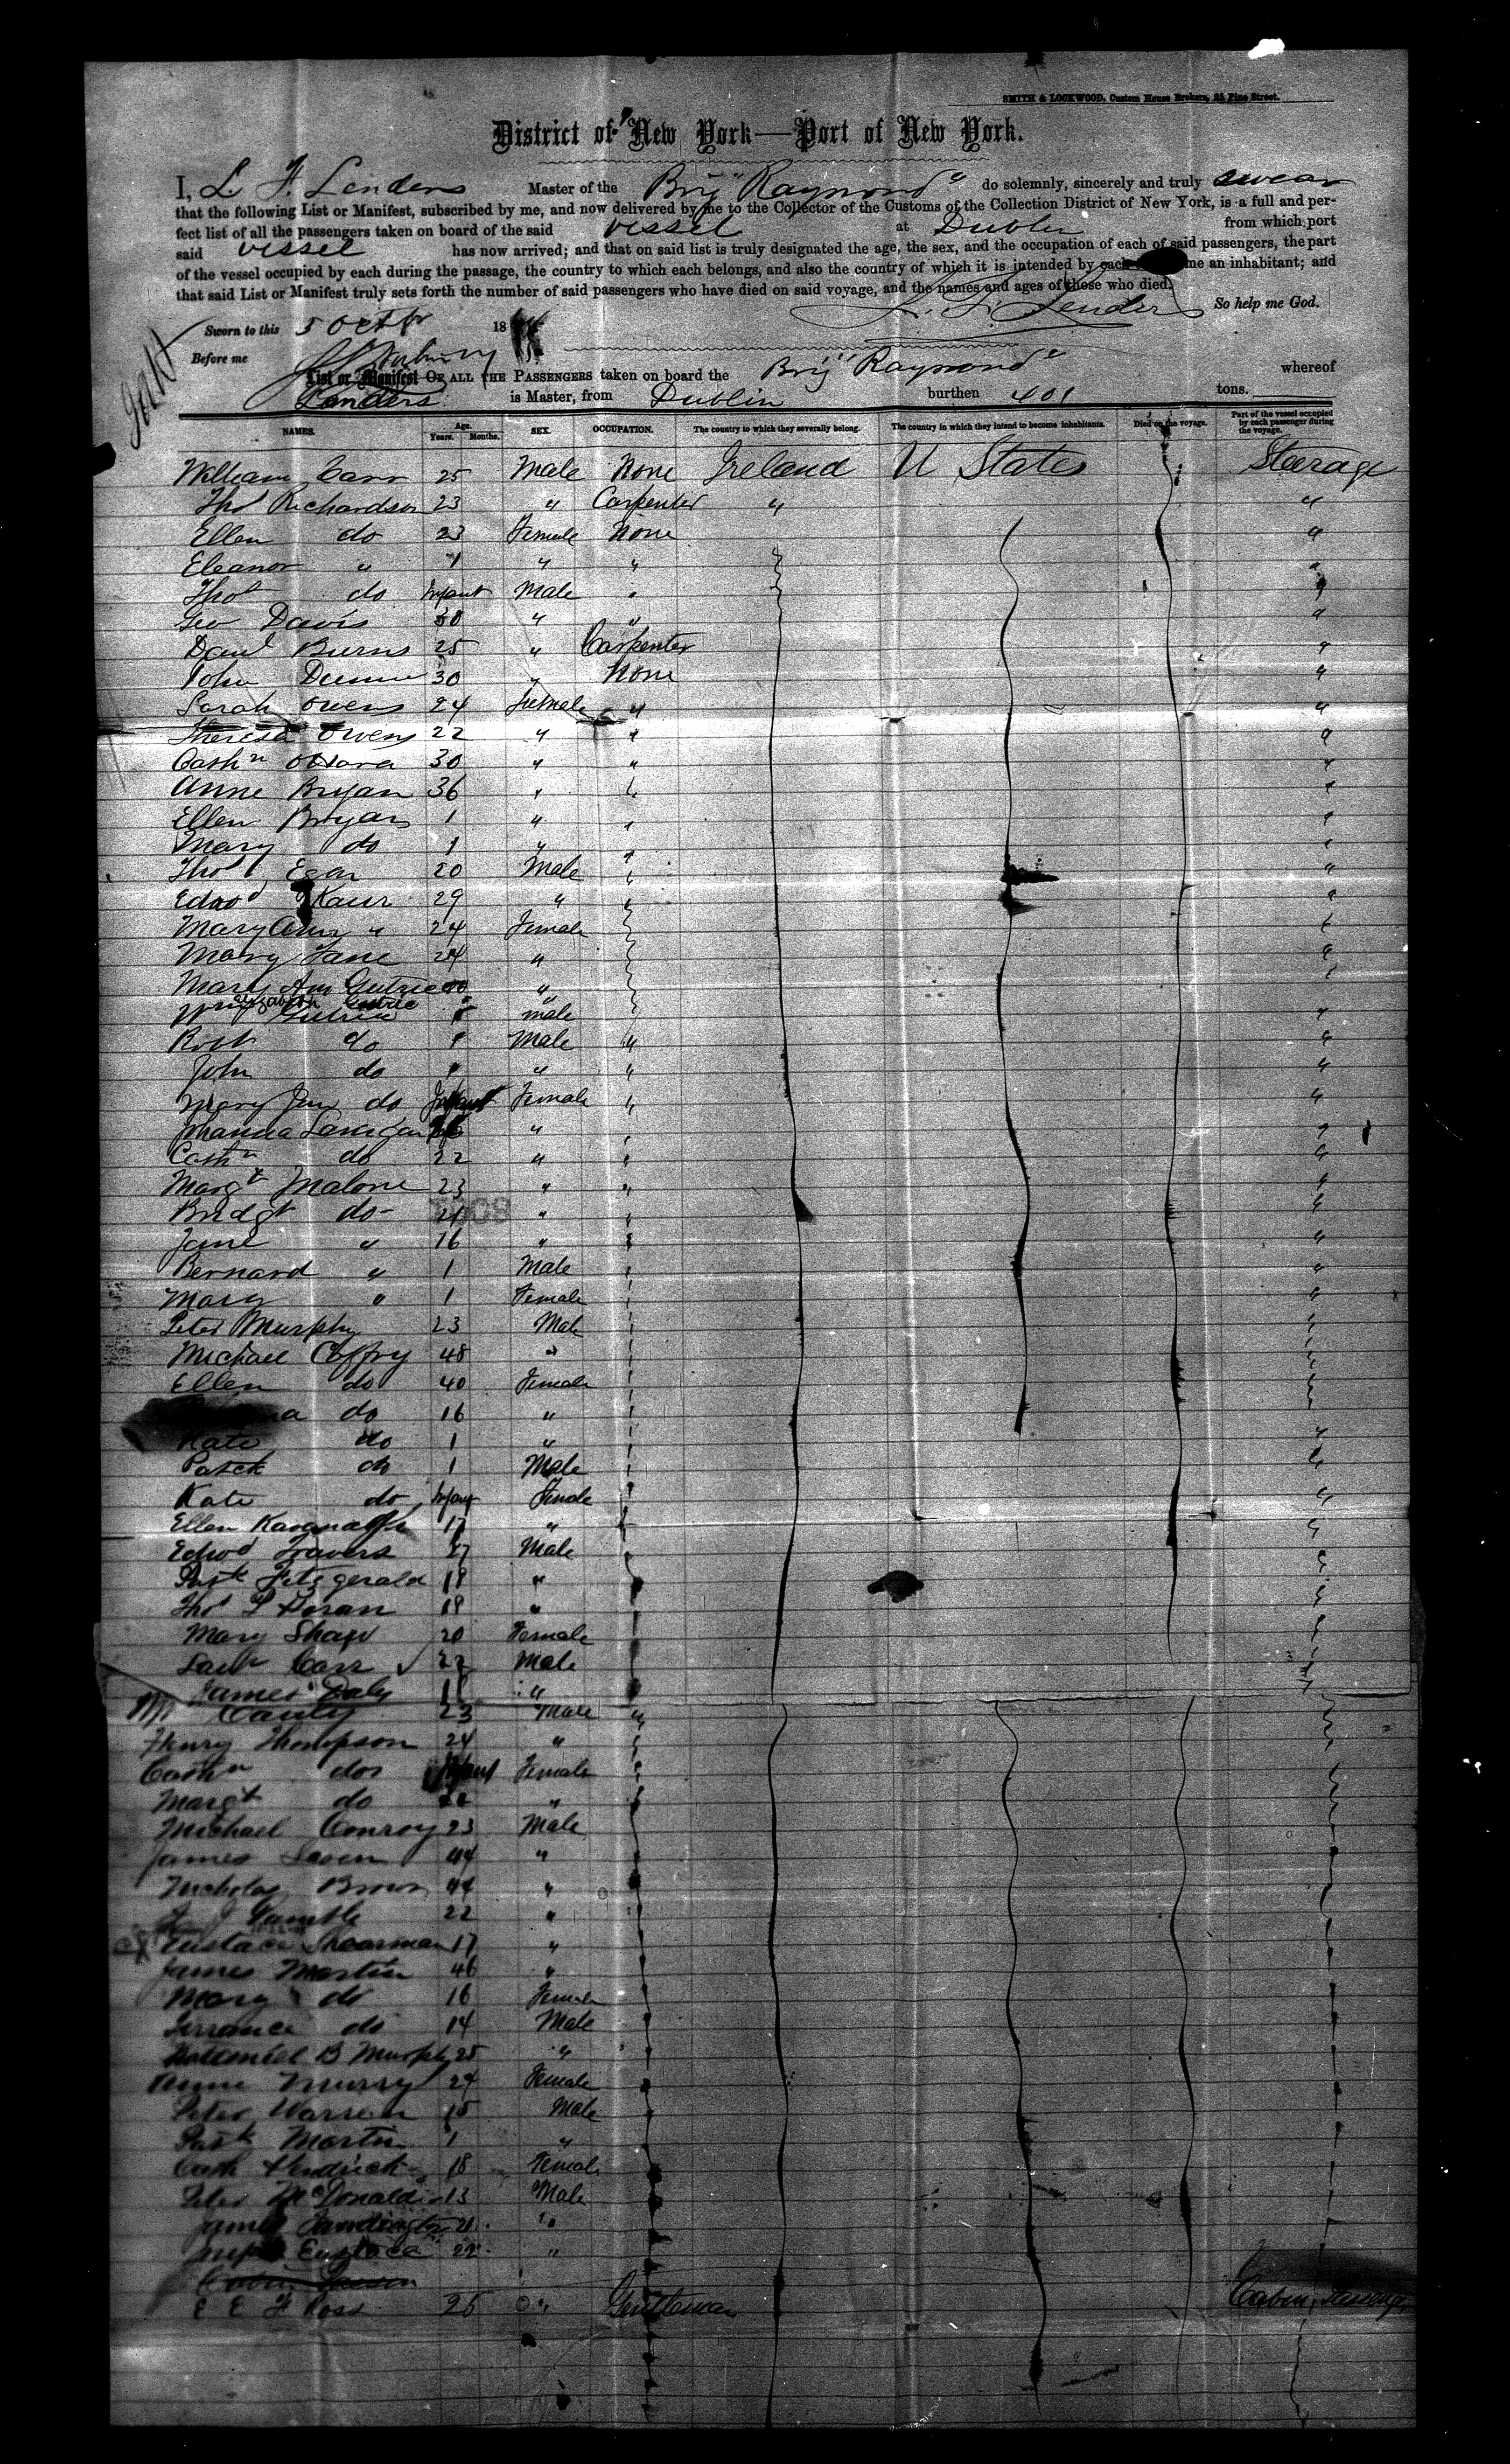 SMITH & LOCKWOOD, Custom House Brokers, 25 Pine Street.
District of New York—Port of New York.
I, L. F. Lenders Master of the Brig "Raymond" do solemnly, sincerely and truly swear
that the following List or Manifest, subscribed by me, and now delivered by me to the Collector of the Customs of the Collection District of New York, is a full and per-
fect list of all the passengers taken on board of the said vessel at Dublin from which port
said vessel has now arrived; and that on said list is truly designated the age, the sex, and the occupation of each of said passengers, the part
of the vessel occupied by each during the passage, the country to which each belongs, and also the country of which it is intended by each me an inhabitant; and
that said List or Manifest truly sets forth the number of said passengers who have died on said voyage, and the names and ages of those who died.
L. F. Lenders So help me God.
Sworn to this 5 Octbr 18
Before me
List or Manifest OF ALL THE PASSENGERS taken on board the Brig "Raymond" whereof
Landers is Master, from Dublin burthen 401 tons.
NAMES. Age. Years. Months. SEX. OCCUPATION. The country to which they severally belong. The country in which they intend to become inhabitants. Died on the voyage. Part of the vessel occupied by each passenger during the voyage.
William Carr 25 Male None Ireland U States Steerage
Thos Richardson 23 " Carpenter " "
Ellen do 23 Female None "
Eleanor " 1 " " "
Thos do Infant Male " "
Geo Davis 30 " " "
Danl Burns 25 " Carpenter "
John Dunne 30 " None "
Sarah Owens 24 Female " "
Theresa Owens 22 " " "
Cathn OHara 30 " " "
Anne Bryan 36 " " "
Ellen Bryan 1 " " "
Mary do 1 " " "
Thos Egan 20 Male " "
Edwd 29 " " "
Mary Ann " 24 Female " "
Mary Lane 24 " " "
Mary Ann Gutrie "
Elizabeth Gutrie
Gutrie male "
Robt do 1 Male " "
John do " " "
Mary Jane do Infant Female " "
Johanna Lanigan " " "
Cathn do 22 " " "
Margt Malone 23 " " "
Bridgt do- 21 " " "
Jane " 16 " " "
Bernard " 1 Male " "
Mary " 1 Female " "
Peter Murphy 23 Male " "
Michael Coffry 48 " " "
Ellen do 40 Female " "
do 16 " "
Kate do 1 " "
Patck do 1 Male "
Kate do Infant Female "
Ellen Kavanagh 17 " "
Edwd Travers 27 Male "
Patk Fitzgerald 18 " "
Thos Doran 18 " "
Mary Shaw 20 Female "
Carr 22 Male "
James Daly 18 "
23 Male "
Henry Thompson 24 " "
Cathn do Infant Female "
Margt do "
Michael Conroy 23 Male
James 44 "
Nicholas Brown 44 "
22 "
Eustace Shearman 17 "
James Martin 46 "
Mary do 16 Female
Terrance do 14 Male
Nathaniel B Murphy 25 "
Anne Murry 24 Female
Peter Warren 15 Male
Patk Martin 1 "
Cath 18 Female
Peter McDonald 13 Male
James 21 "
Eustace 22 "
E E F Ross 25 " Gentleman Cabin Passenger